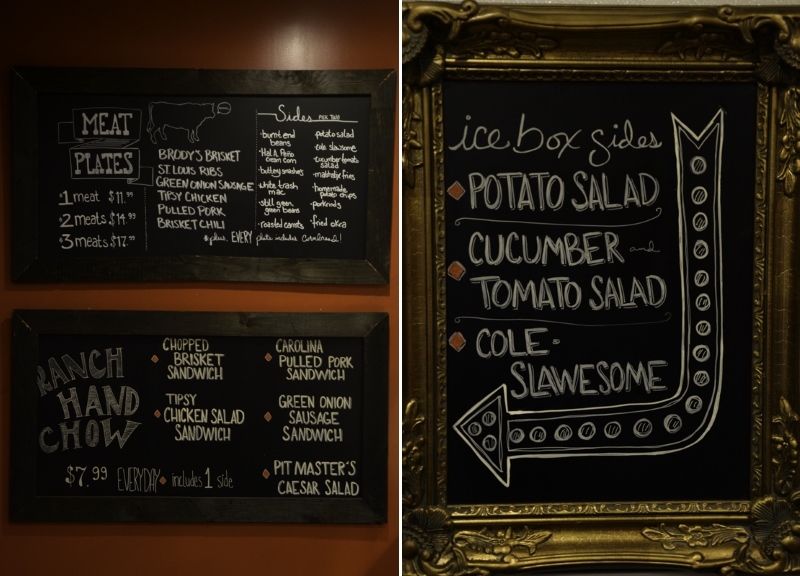 MEAT
PLATES
1 meat $11.99
2 meats $14.99
3 meats $17.99
BRODY'S BRISKET
ST. LOUIS RIBS
GREEN ONION SAUSAGE
TIPSY CHICKEN
PULLED PORK
BRISKET CHILI
Sides PICK TWO
burnt end
beans
cream corn
white trash
mac
green beans
roasted carrots
potato salad
cole slawsome
cucumber tomato
salad
homemade
potato chips
porkrinds
fried okra
*plus, EVERY plate includes Cornbread!
RANCH
HAND
CHOW
$7.99 EVERYDAY includes 1 side
CHOPPED
BRISKET
SANDWICH
TIPSY
CHICKEN SALAD
SANDWICH
CAROLINA
PULLED PORK
SANDWICH
GREEN ONION
SAUSAGE
SANDWICH
PIT MASTER'S
CAESAR SALAD
ice box sides
POTATO SALAD
CUCUMBER and
TOMATO SALAD
COLE-
SLAWESOME